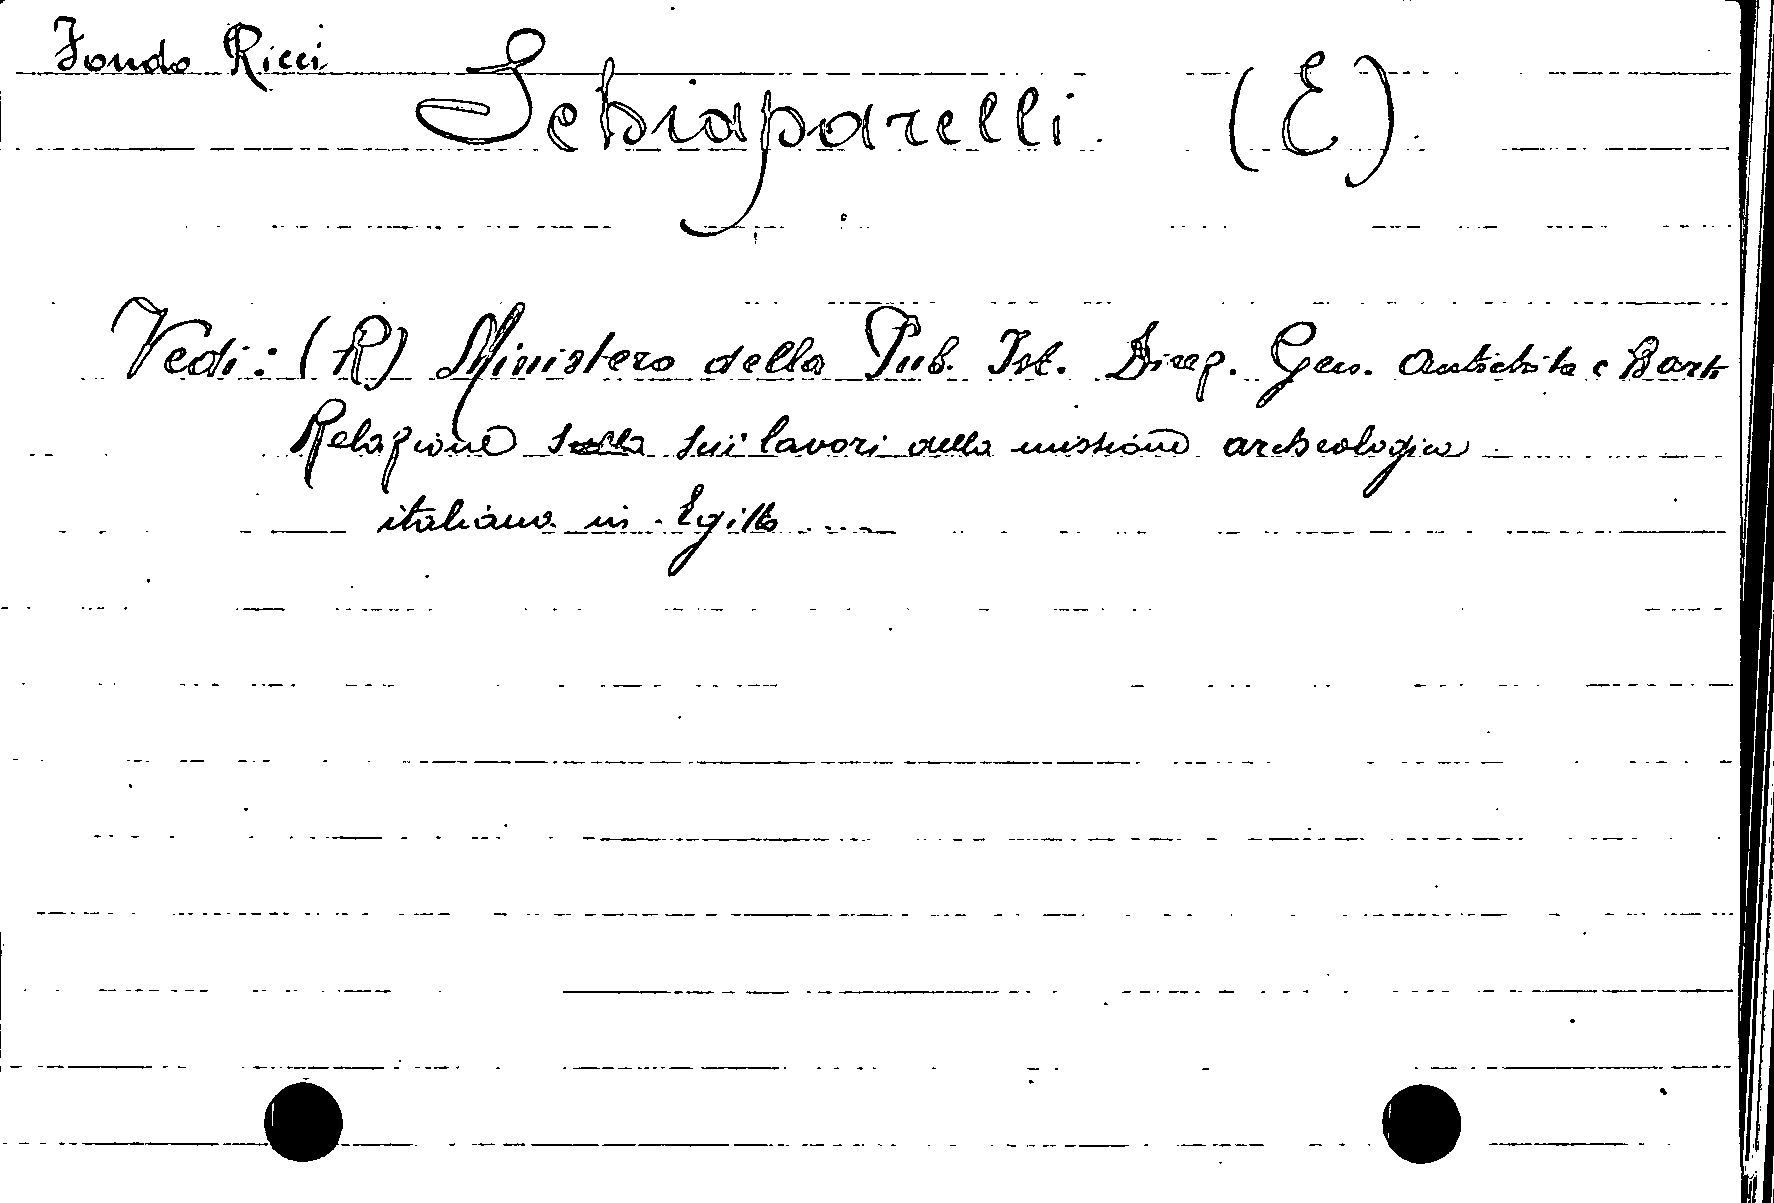 Fondo Ricci
Schiaparelli (E)
Vedi: (R) Ministero della Pub. Ist. Direz. Gen. Antichita e B arti
Relazione sulla sui lavori della missione archeologica
italiana in Egitto ....